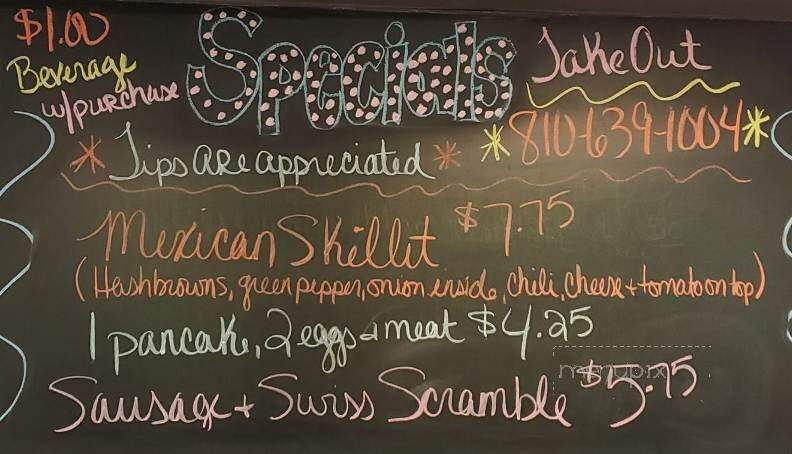 $1.00
Beverage
w/purchase
Specials
Take Out
810-639-1004*
* Tips are appreciated * *
Mexican Skillit $7.75
(Hashbrowns, green pepper, onion inside, chili, cheese + tomato on top)
1 pancake, 2 eggs + meat $4.25
Sausage + Swiss Scramble $5.75
menupix